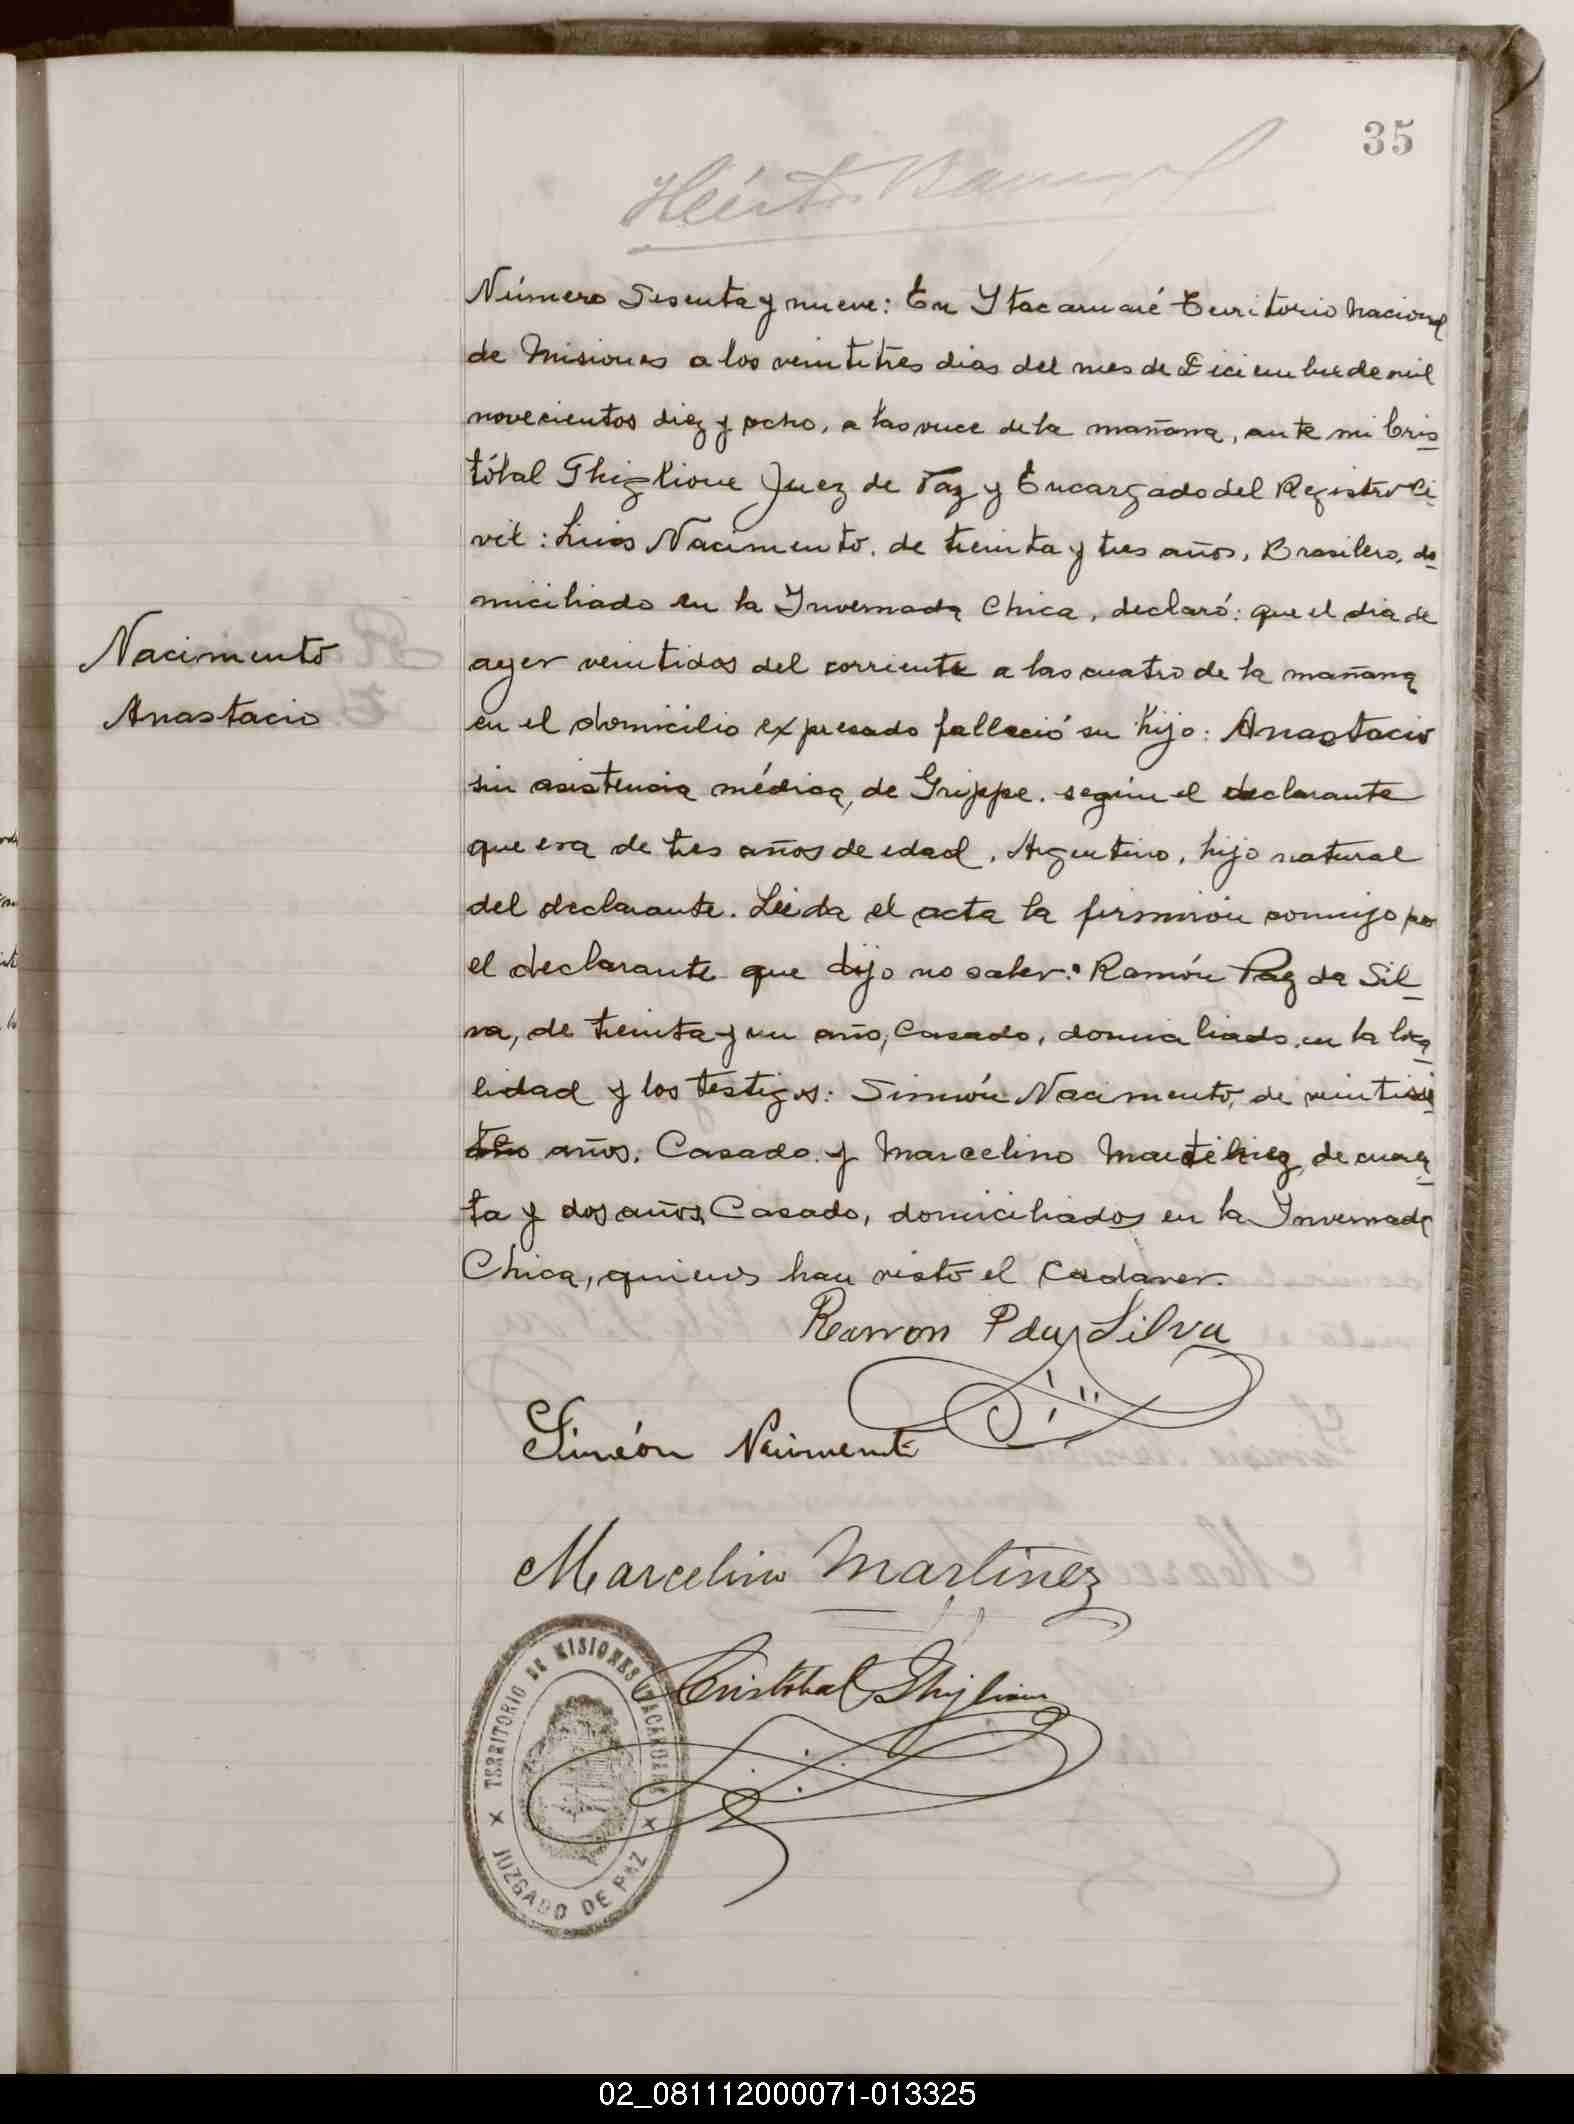 35
Número Sesenta y nueve: En Ytacaruaré Territorio Nacional
de Misiones a los veintitres dias del mes de Diciembre de mil
novecientos diez y ocho, a las once de la mañana, ante mi Cris
tóbal Ghiglione Juez de Paz y Encargado del Registro Ci
vil: Luis Nacimento, de treinta y tres años, Brasilero, do
miciliado en la Invernada Chica, declaró: que el dia de
ayer veintidos del corriente a las cuatro de la mañana
en el domicilio expresado falleció su hijo: Anastacio
Nacimento
Anastacio
sin asistencia médica, de Grippe, según el declarante
que era de tres años de edad, Argentino, hijo natural
del declarante. Leida el acta la firmaron conmigo por
el declarante que dijo no saber: Ramón Paz da Sil
va, de treinta y un año, Casado, domiciliado en la loca
lidad y los testigos: Simeón Nacimento, de veintisie
te años, Casado y Marcelino Martinez, de cuaren
ta y dos años, Casado, domiciliados en la Invernada
Chica, quienes han visto el cadaver.
Ramon P da Silva
Simeón Nacimento
Marcelino Martinez
Cristobal Ghiglione
TERRITORIO DE MISIONES ITACARUARE
JUZGADO DE PAZ
02_081112000071-013325